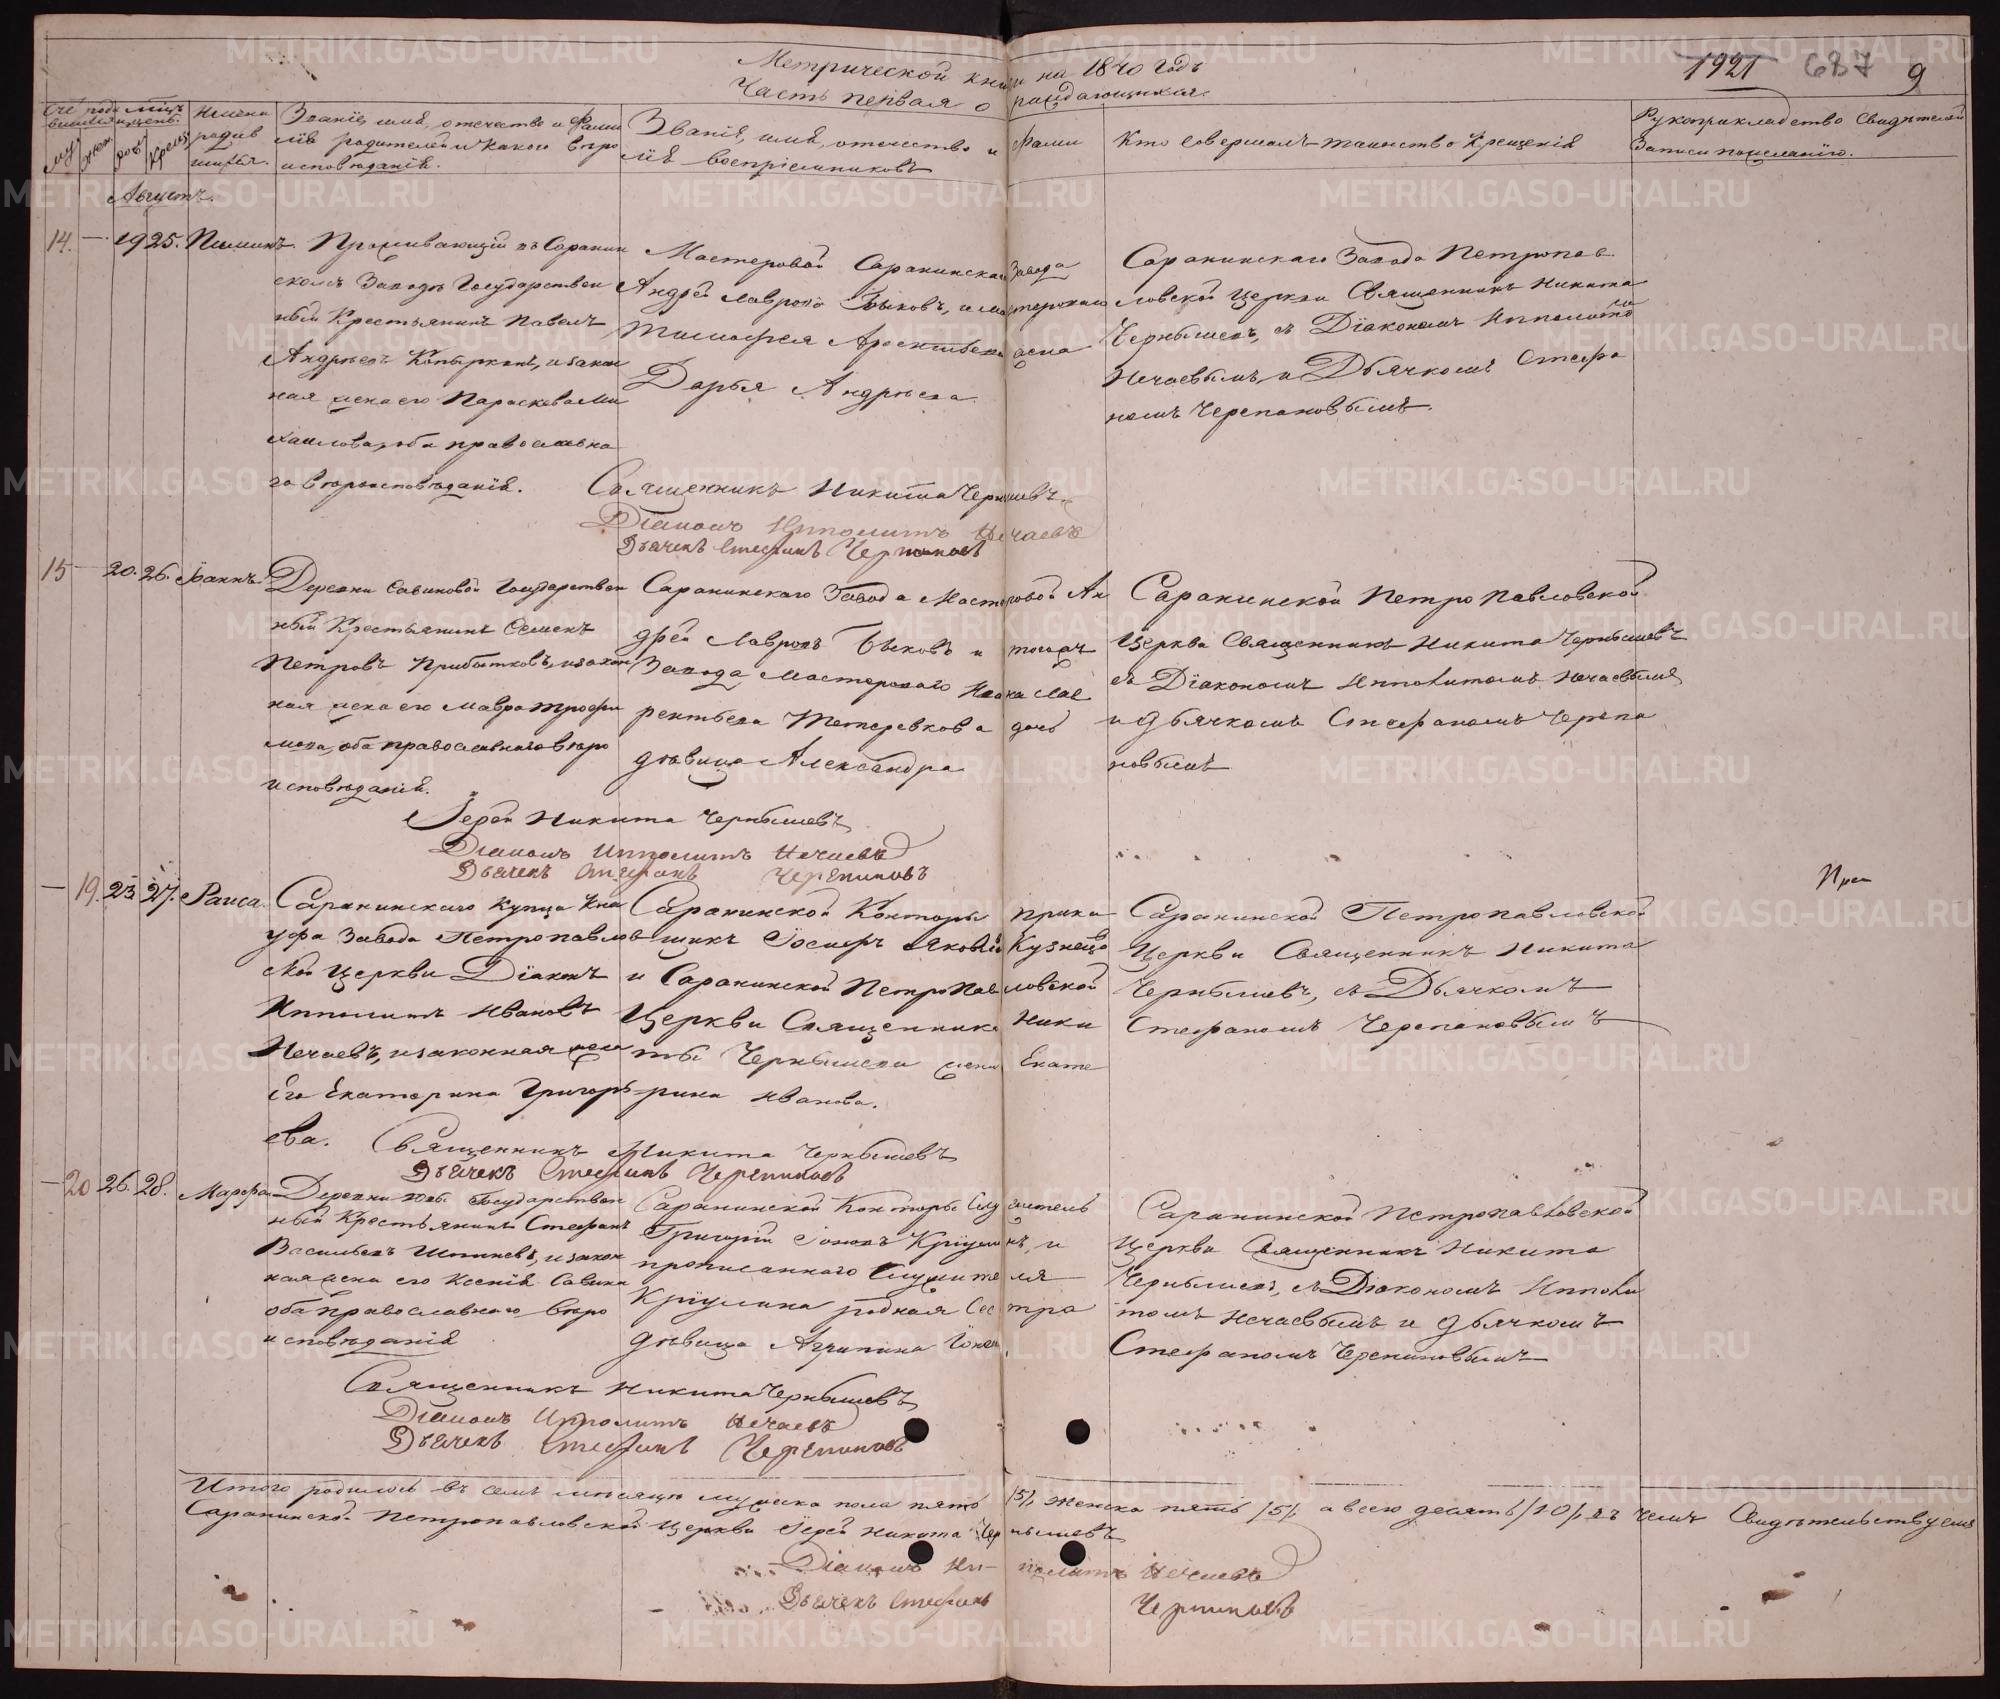 Метрической книги на 1870 годъ
Часть первая о раждающихся.
1921 687 9
Счетъ родившихся
Мѣсяцъ и день.
Имена родившихся.
Званіе, имя, отечество и фамилія родителей и какого вѣроисповѣданія.
Званіе, имя, отечество и фамилія воспріемниковъ
Кто совершалъ таинство Крещенія
Рукоприкладство свидѣтелей записи по желанію.
муж. жен. рож. Крещ.
Августъ.
14. — 19 25. Пименъ.
Проживающій въ Саранин
скомъ Заводѣ Государствен
ный Крестьянинъ Павелъ
Андреевъ Копыркинъ, и закон
ная жена его Параскева Ми
хаилова, оба православна
го вѣроисповѣданія.
Мастеровой Саранинскаго Завода
Андрей Лавровъ Быковъ, и мастероваго
Тимофея жена
Дарья Андреева
Саранинскаго Завода Петропав
ловской Церкви Священникъ Никита
Чернышевъ, съ Діакономъ Ипполитомъ
Нечаевымъ, и Дьячкомъ Стефа
номъ Черепановымъ.
Священникъ Никита Чернышевъ.
Діаконъ Ипполитъ Нечаевъ
Дьячекъ Стефанъ Черепановъ
15 — 20. 26. Іоаннъ.
Деревни Савиновой Государствен
ный Крестьянинъ Семенъ
Петровъ Прибытковъ, и закон
ная жена его Мавра Трофи
мова, оба православнаго вѣро
исповѣданія.
Саранинскаго Завода Мастеровой Ан
дрей Лавровъ Быковъ и того жъ
Завода Мастероваго Ивана Лав
рентьева Тетеревкова дочь
дѣвица Александра
Саранинской Петропавловской
Церкви Священникъ Никита Чернышевъ
съ Діакономъ Ипполитомъ Нечаевымъ,
и дьячкомъ Стефаномъ Черепа
новымъ
Іерей Никита Чернышевъ,
Діаконъ Ипполитъ Нечаевъ
Дьячекъ Стефанъ Черепановъ
— 19. 23 27. Раиса.
Саранинскаго Купца Кна
уфа Завода Петропавлов
ской Церкви Діаконъ
Ипполитъ Ивановъ
Нечаевъ, и законная жена
его Екатерина Григорь
ева.
Саранинской Конторы прика
щикъ Іосифъ Яковлевъ Кузнецовъ
и Саранинской Петропавловской
Церкви Священника Ники
ты Чернышева жена Екате
рина Иванова.
Саранинской Петропавловской
Церкви Священникъ Никита
Чернышевъ, съ Дьячкомъ
Стефаномъ Черепановымъ
Священникъ Никита Чернышевъ
Дьячекъ Стефанъ Черепановъ
— 20 26. 28. Марфа
Деревни Ювы Государствен
ный Крестьянинъ Стефанъ
Васильевъ, и закон
ная жена его Ксенія Савина
оба православнаго вѣро
исповѣданія
Саранинской Конторы Служитель
Григорій Іоновъ, и
прописаннаго Служителя
родная Сестра
дѣвица Агрипина Іонова.
Саранинской Петропавловской
Церкви Священникъ Никита
Чернышевъ, съ Діакономъ Ипполи
томъ Нечаевымъ и дьячкомъ
Стефаномъ Черепановымъ
Священникъ Никита Чернышевъ
Діаконъ Ипполитъ Нечаевъ
Дьячекъ Стефанъ Черепановъ
Итого родилось въ семъ мѣсяцѣ мужеска пола пять /5/, женска пять /5/, а всего десять /10/, въ чемъ Свидѣтельствуемъ
Саранинской Петропавловской Церкви Іерей Никита Чернышевъ
Діаконъ Ипполитъ Нечаевъ
Дьячекъ Стефанъ Черепановъ
METRIKI.GASO-URAL.RU